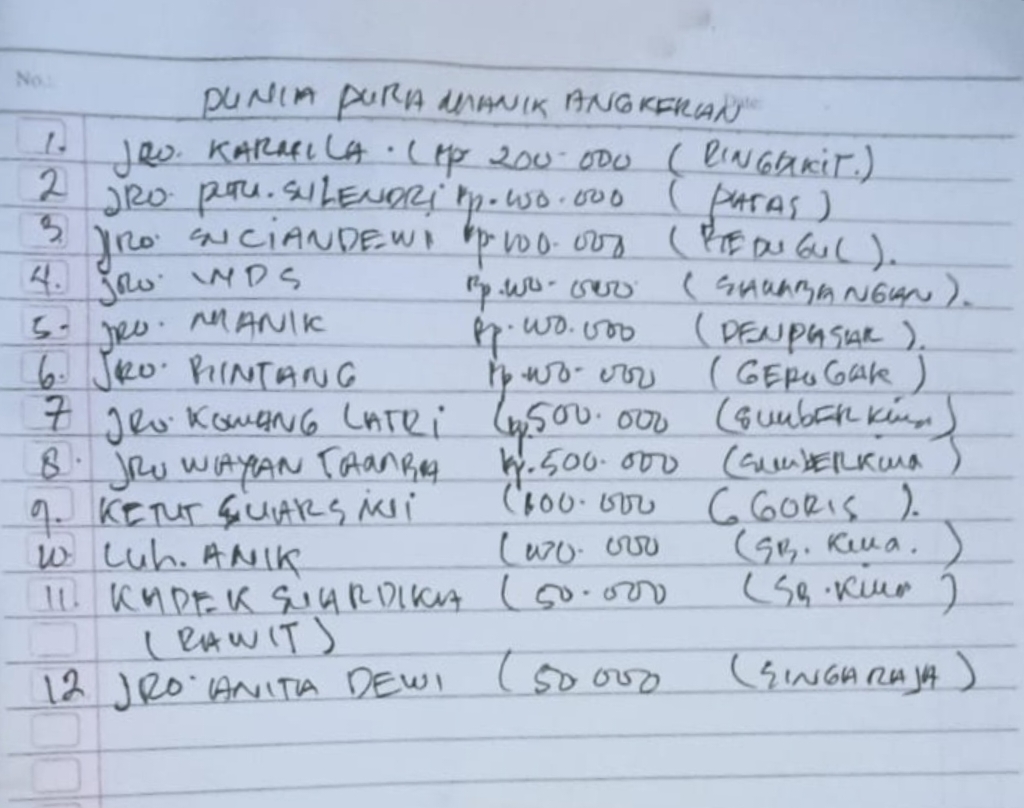 No.:
DUNIA PURA MANIK ANGKERAN
1. JRO. KARMILA. (Rp 200.000 (RINGDIKIT.)
2 JRO. PUTU. SULENDRI Rp. 100.000 (PATAS)
3. JRO. SUCIANDEWI Rp 100.000 (BEDUGUL).
4. JRO. MDS Rp. 100.000 (SAWABANGAN).
5. JRO. MANIK Rp. 100.000 (DENPASAR).
6. JRO. BINTANG Rp 100.000 (GEROGAK)
7 JRO. KOMANG LATRI (Rp 500.000 (SUMBER Kima)
8. JRO WAYAN TAMBA Rp. 500.000 (SUMBERKIMA)
9. KETUT SUARSINI (100.000 (GORIS).
10 Luh. ANIK (100.000 (SB. Kima.)
11. KADEK SUARDIKA (50.000 (SB. Kima)
(RAWIT)
12 JRO. ANITA DEWI (50 000 (SINGARAJA)